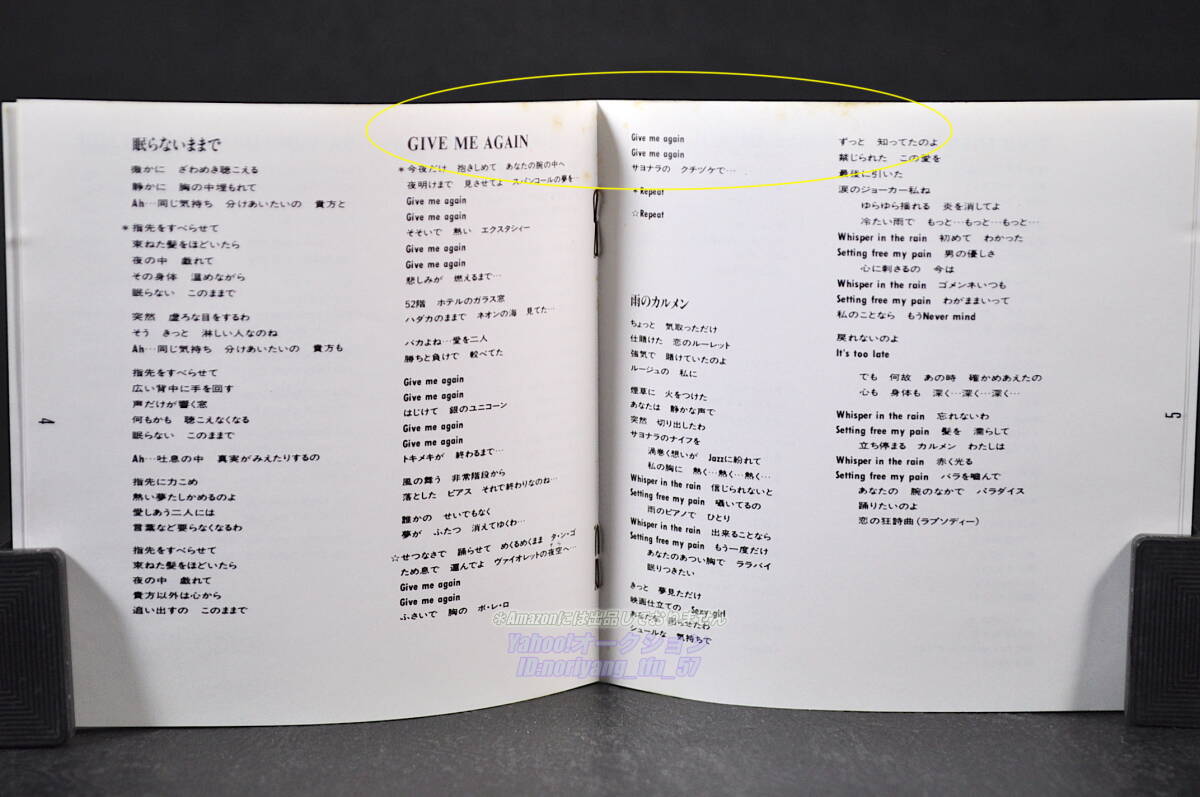 眠らないままで
微かに ざわめき聴こえる
静かに 胸の中埋もれて
Ah…同じ気持ち 分けあいたいの 貴方と
＊指先をすべらせて
束ねた髪をほどいたら
夜の中 戯れて
その身体 温めながら
眠らない このままで
突然 虚ろな目をするわ
そう きっと 淋しい人なのね
Ah…同じ気持ち 分けあいたいの 貴方も
指先をすべらせて
広い背中に手を回す
声だけが響く窓
何もかも 聴こえなくなる
眠らない このままで
Ah…吐息の中 真実がみえたりするの
指先に力こめ
熱い夢たしかめるのよ
愛しあう二人には
言葉など要らなくなるわ
指先をすべらせて
束ねた髪をほどいたら
夜の中 戯れて
貴方以外は心から
追い出すの このままで
4
GIVE ME AGAIN
＊今夜だけ 抱きしめて あなたの腕の中へ
夜明けまで 見させてよ スパンコールの夢を…
Give me again
Give me again
そそいで 熱い エクスタシィー
Give me again
Give me again
悲しみが 燃えるまで…
52階 ホテルのガラス窓
ハダカのままで ネオンの海 見てた…
バカよね…愛を二人
勝ちと負けで 較べてた
Give me again
Give me again
はじけて 銀のユニコーン
Give me again
Give me again
トキメキが 終わるまで…
風の舞う 非常階段から
落とした ピアス それで終わりなのね…
誰かの せいでもなく
夢が ふたつ 消えてゆくわ…
☆せつなさで 踊らせて めくるめくまま タ・ン・ゴ
ため息で 運んでよ ヴァイオレットの夜空へ…
Give me again
Give me again
ふさいで 胸の ボ・レ・ロ
Give me again
Give me again
サヨナラの クチヅケで…
＊Repeat
☆Repeat
雨のカルメン
ちょっと 気取っただけ
仕賭けた 恋のルーレット
強気で 賭けていたのよ
ルージュの 私に
煙草に 火をつけた
あなたは 静かな声で
突然 切り出したわ
サヨナラのナイフを
渦巻く想いが Jazzに紛れて
私の胸に 熱く…熱く…熱く…
Whisper in the rain 信じられないと
Setting free my pain 囁いてるの
雨のピアノで ひとり
Whisper in the rain 出来ることなら
Setting free my pain もう一度だけ
あなたのあつい胸で ララバイ
眠りつきたい
きっと 夢見ただけ
映画仕立ての Sexy girl
あなたを 困らせたわ
シュールな 気持ちで
ずっと 知ってたのよ
禁じられた この愛を
最後に引いた
涙のジョーカー私ね
ゆらゆら揺れる 炎を消してよ
冷たい雨で もっと…もっと…もっと…
Whisper in the rain 初めて わかった
Setting free my pain 男の優しさ
心に刺さるの 今は
Whisper in the rain ゴメンネいつも
Setting free my pain わがままいって
私のことなら もうNever mind
戻れないのよ
It's too late
でも 何故 あの時 確かめあえたの
心も 身体も 深く…深く…深く…
Whisper in the rain 忘れないわ
Setting free my pain 髪を 濡らして
立ち停まる カルメン わたしは
Whisper in the rain 赤く光る
Setting free my pain バラを嚙んで
あなたの 腕のなかで パラダイス
踊りたいのよ
恋の狂詩曲(ラプソディー)
5
＊Amazonには出品しておりません
Yahoo!オークション
ID:noriyang_tfu_57